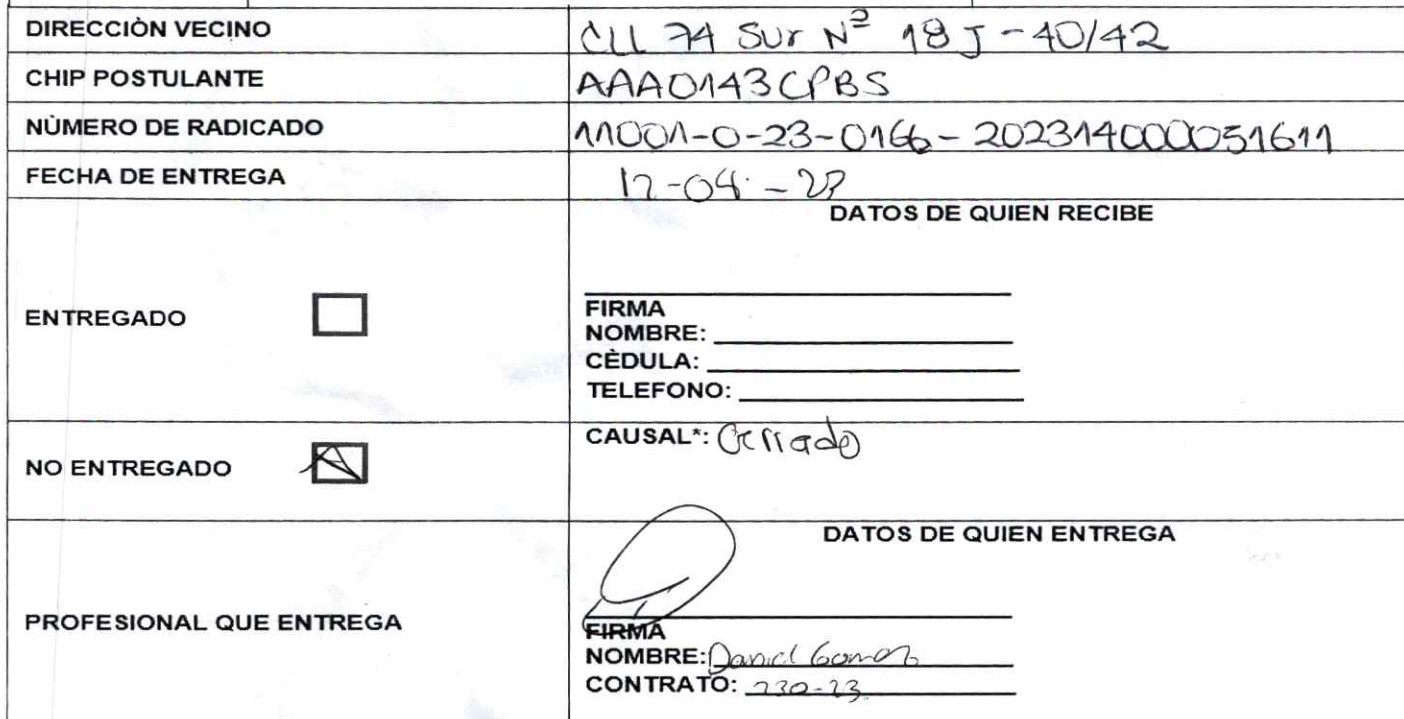 DIRECCIÒN VECINO CLL 74 Sur Nº 18 J - 40/42
CHIP POSTULANTE AAA0143CPBS
NÙMERO DE RADICADO 11001-0-23-0166-202314000051611
FECHA DE ENTREGA 12-04-23
DATOS DE QUIEN RECIBE
ENTREGADO
FIRMA
NOMBRE:
CÈDULA:
TELEFONO:
NO ENTREGADO
CAUSAL*: Cerrado
DATOS DE QUIEN ENTREGA
PROFESIONAL QUE ENTREGA
FIRMA
NOMBRE: Daniel Gomez
CONTRATO: 230-23